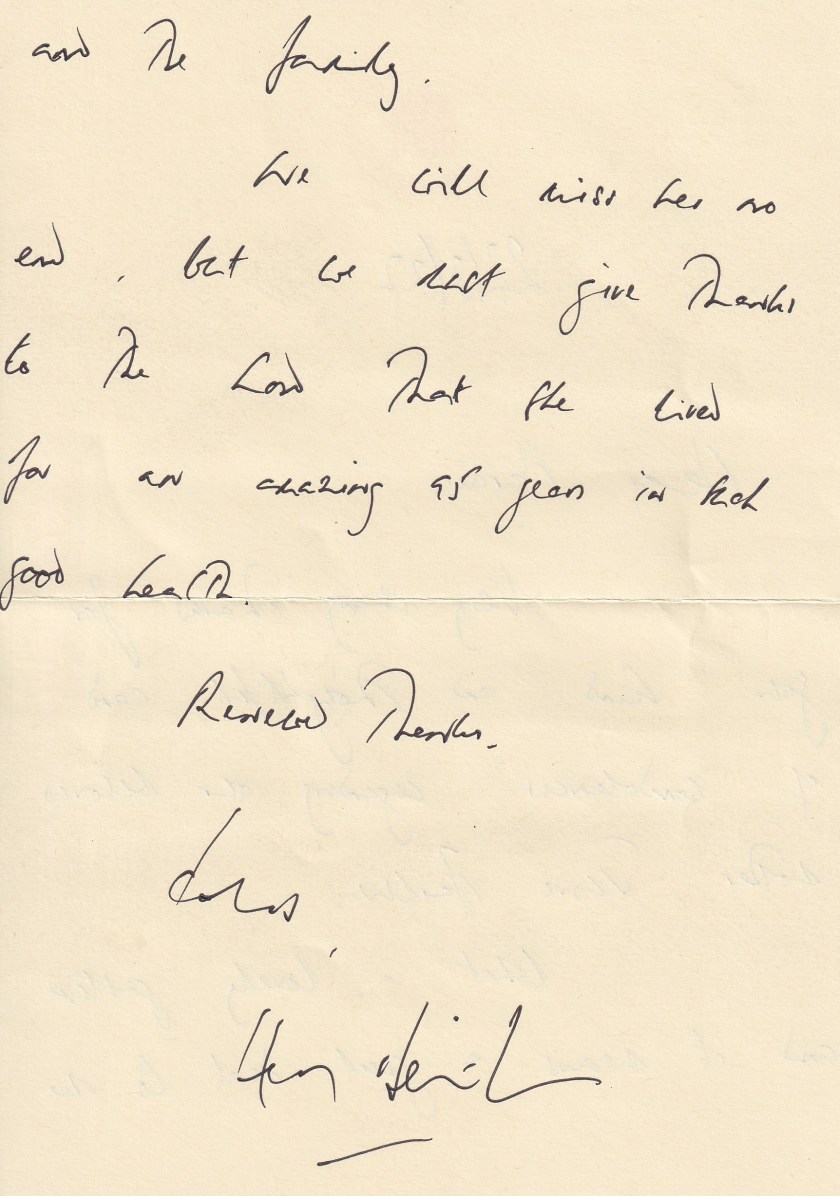 and the family.
We will miss her no
end, but we must give thanks
to the Lord that she lived
for an amazing 95 years in such
good health.
Renewed Thanks.